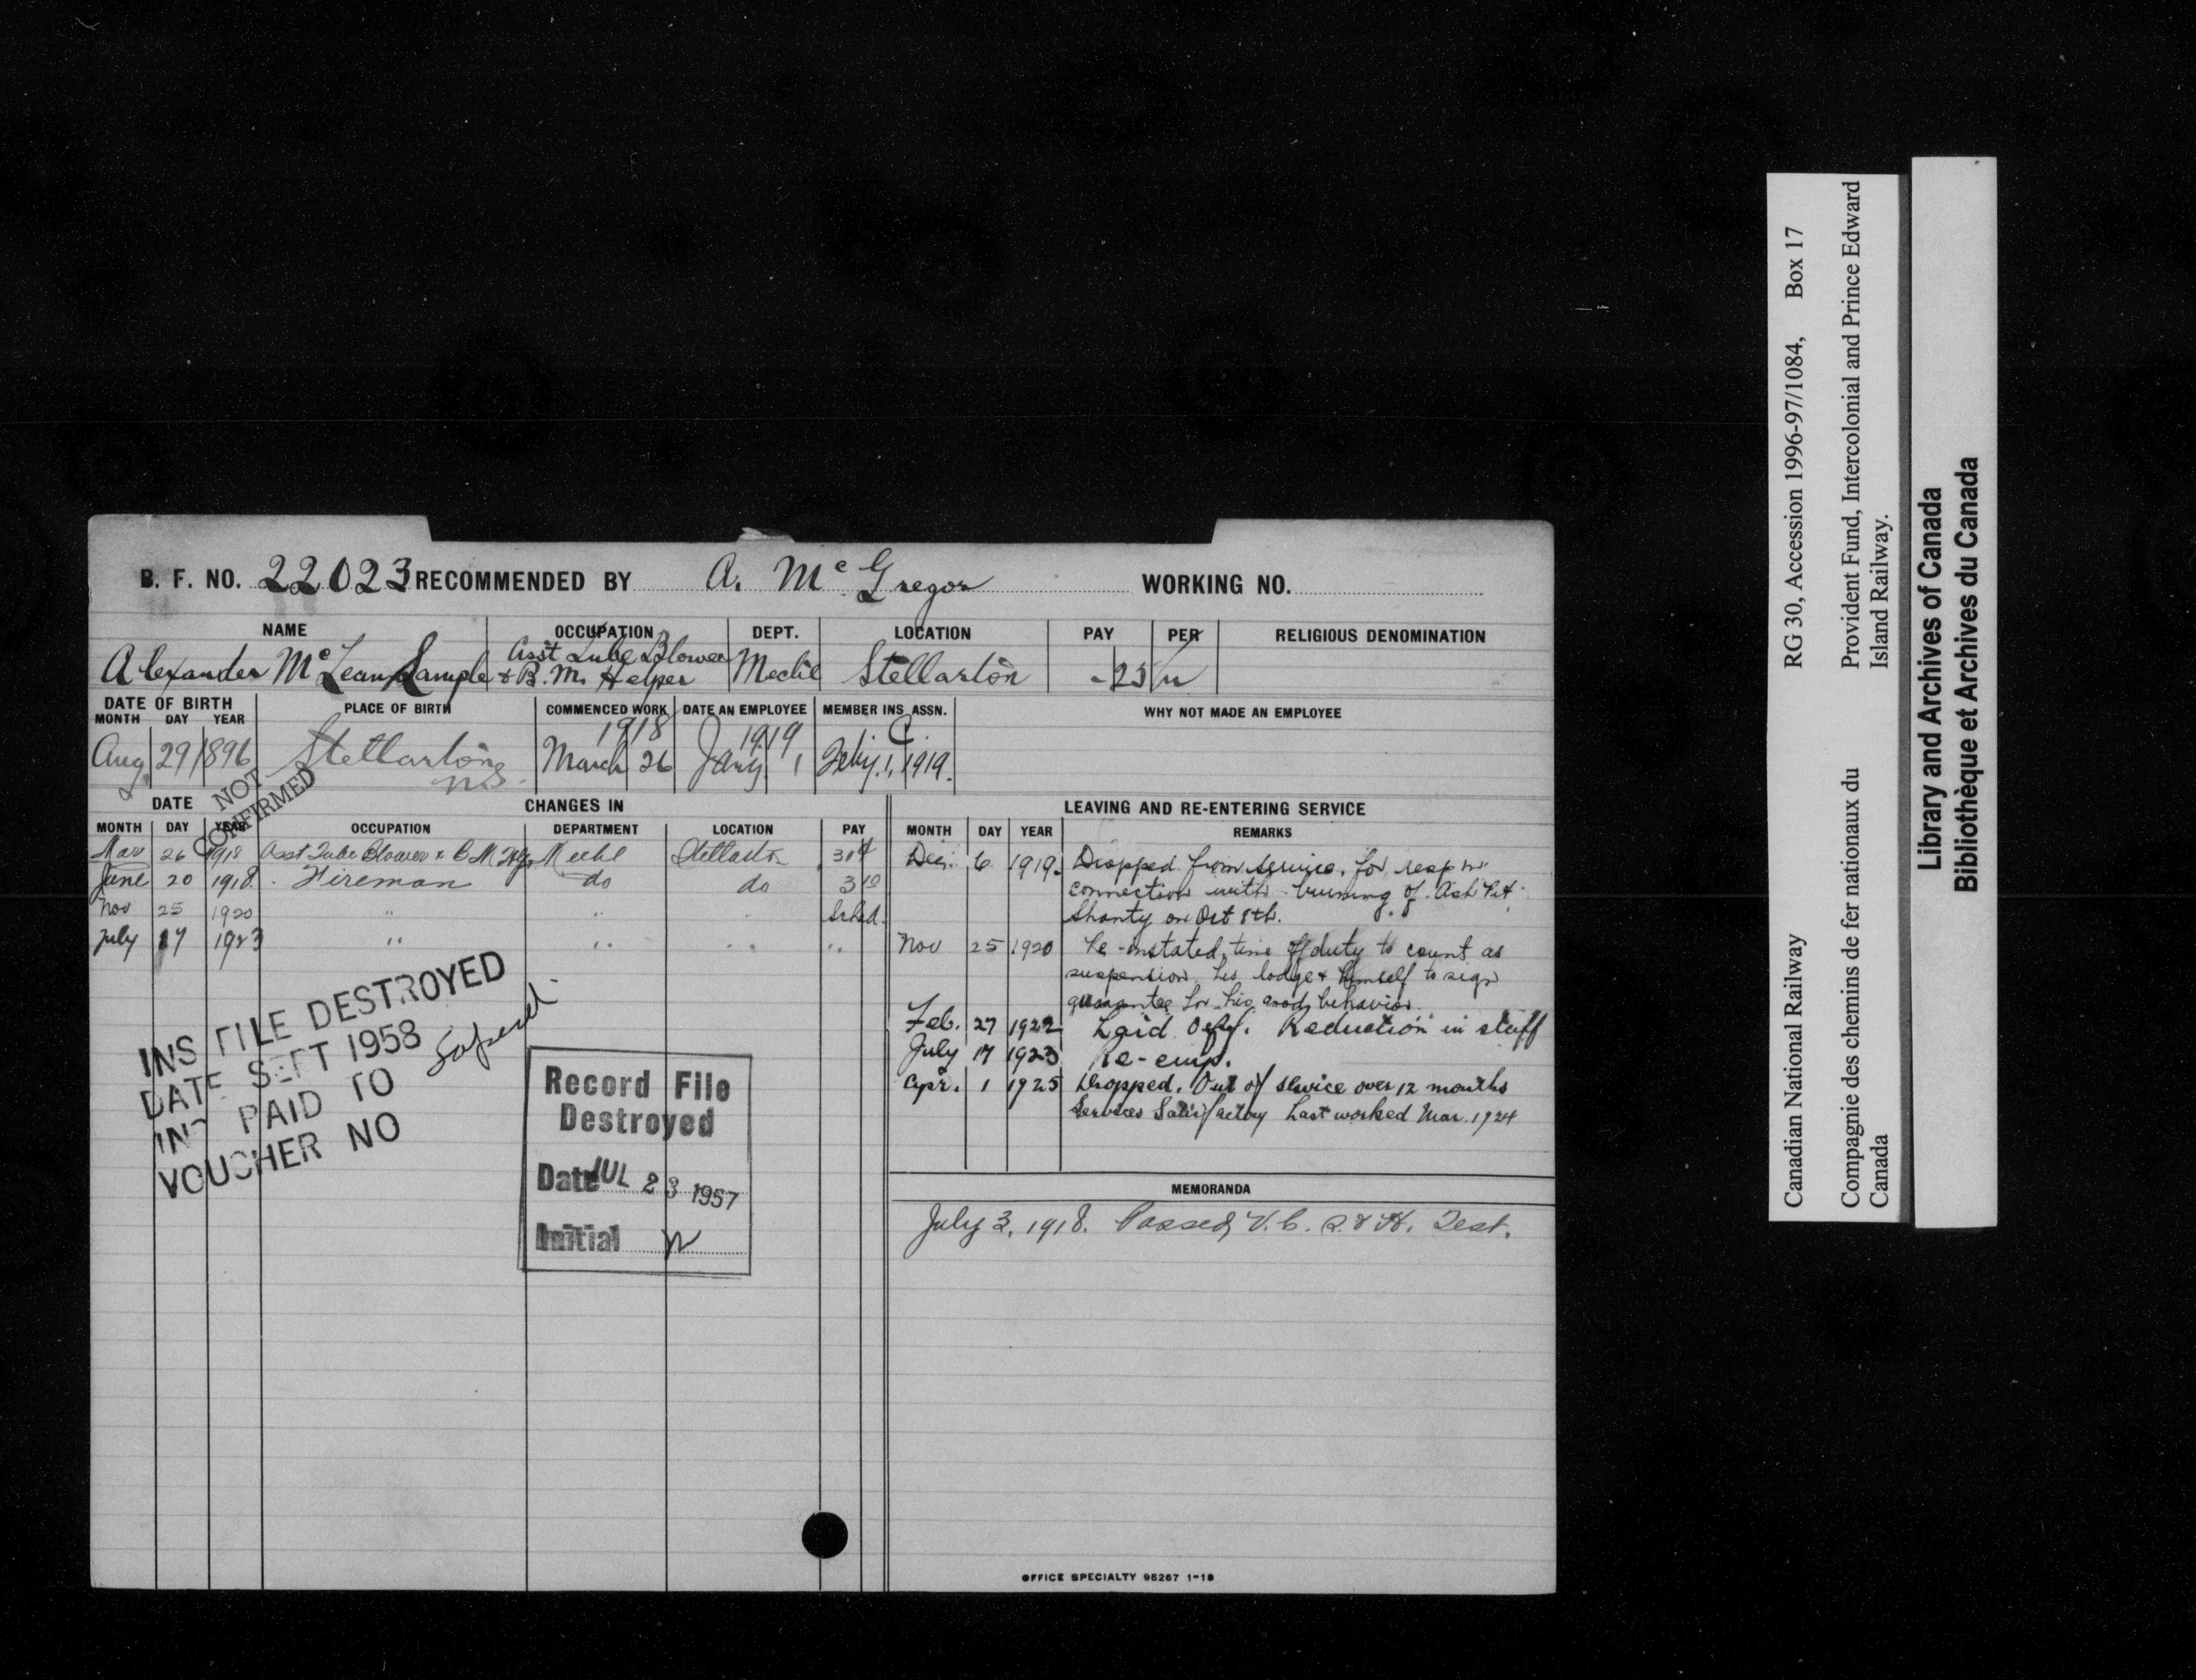 B. F. NO. 22023 RECOMMENDED BY A. McGregor WORKING NO.
NAME OCCUPATION DEPT. LOCATION PAY PER RELIGIOUS DENOMINATION
Alexander McLean Sample Asst Tube Blower & B. M. Helper Mechl Stellarton -25
DATE OF BIRTH PLACE OF BIRTH COMMENCED WORK DATE AN EMPLOYEE MEMBER INS. ASSN. WHY NOT MADE AN EMPLOYEE
MONTH DAY YEAR
1918 1919 C.
Aug 29 1896 Stellarton March 26 Jany 1 Feby. 1, 1919.
N.S.
NOT CONFIRMED
DATE CHANGES IN LEAVING AND RE-ENTERING SERVICE
MONTH DAY YEAR OCCUPATION DEPARTMENT LOCATION PAY MONTH DAY YEAR REMARKS
Mar 26 1918 Asst Tube Blower & B. M. Mechl Stellarton
June 20 1918. Fireman do do 3 10
Nov 25 1920 " " Sched.
July 17 1923 " " " "
Dec. 6 1919. Dropped from service, for resp in
connection with burning of Ash Pit
Shanty on Oct 8th.
Nov 25 1920 Re-instated, time off duty to count as
suspension, his lodge & himself to sign
guarantee for his good behavior.
Feb. 27 1922 Laid Off. Reduction in staff
July 17 1923 Re-emp.
Apr. 1 1925 Dropped. Out of service over 12 months
Services Satisfactory Last worked Mar. 1924
INS FILE DESTROYED
DATE SEPT 1958
INS PAID TO
VOUCHER NO
Record File
Destroyed
Date JUL 23 1957
Initial
MEMORANDA
July 3, 1918. Passed, V. C. S. & H. Test.
OFFICE SPECIALTY 95267 1-18
Canadian National Railway RG 30, Accession 1996-97/1084, Box 17
Compagnie des chemins de fer nationaux du Canada
Provident Fund, Intercolonial and Prince Edward Island Railway.
Library and Archives of Canada
Bibliothèque et Archives du Canada